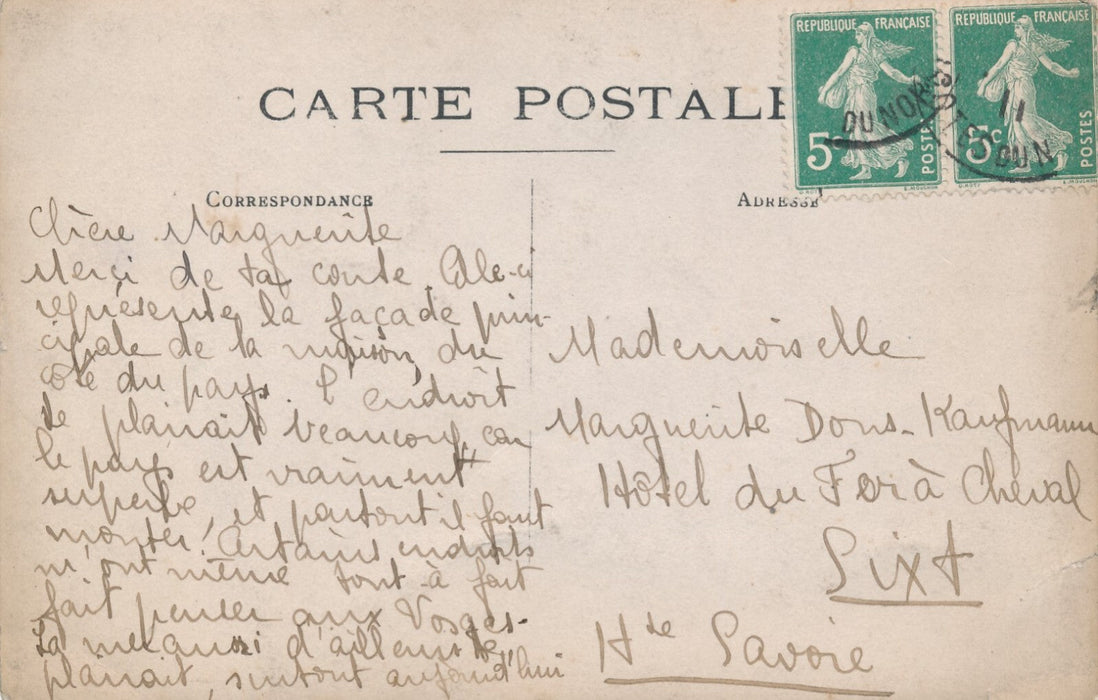 CARTE POSTALE
RÉPUBLIQUE FRANÇAISE
5c
POSTES
RÉPUBLIQUE FRANÇAISE
5c
POSTES
DU NORD
11
DUN
CORRESPONDANCE
Chère Marguerite
Merci de ta carte. Celle-ci
représente la façade prin-
cipale de la maison, du
côté du pays. L'endroit
te plairait beaucoup, car
le pays est vraiment
superbe, et partout il faut
monter. Certains endroits
m'ont même tout à fait
fait penser aux Vosges.
La mer aussi d'ailleurs te
plairait, surtout aujourd'hui
ADRESSE
Mademoiselle
Marguerite Dons-Kaufmann
Hôtel du Fer à Cheval
Sixt
Hte Savoie